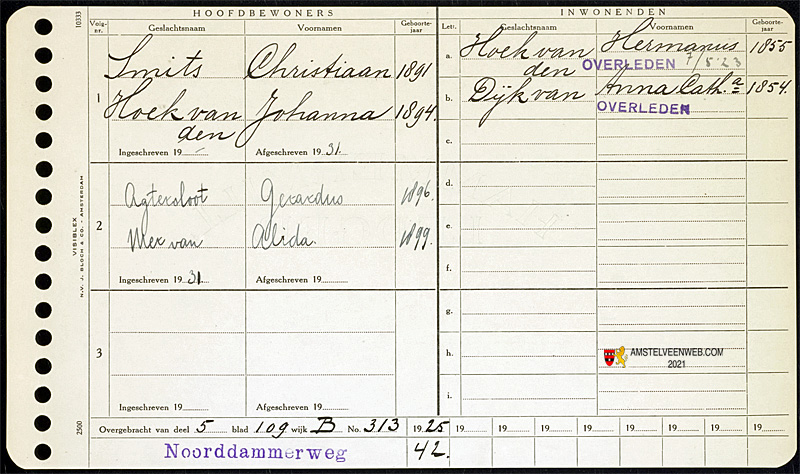 HOOFDBEWONERS
Volg-nr. Geslachtsnaam Voornamen Geboorte-jaar
1
Smits Christiaan 1891
Hoek van den Johanna 1894.
Ingeschreven 19 Afgeschreven 19 31.
2
Agtersloot Gerardus 1896.
Mey van Alida. 1899.
Ingeschreven 19 31. Afgeschreven 19
3
Ingeschreven 19 Afgeschreven 19
INWONENDEN
Lett. Geslachtsnaam Voornamen Geboorte-jaar
a. Hoek van den Hermanus 1855
OVERLEDEN 7/5'23
b. Dijk van Anna Cath.a 1854.
OVERLEDEN
c.
d.
e.
f.
g.
h.
i.
AMSTELVEENWEB.COM
2021
Overgebracht van deel 5 blad 109 wijk B No. 313 1925 19 19 19 19 19 19 19 19
Noorddammerweg 42.
10333
VISIBLEX
N.V. J. BLOCH & CO. - AMSTERDAM
2500